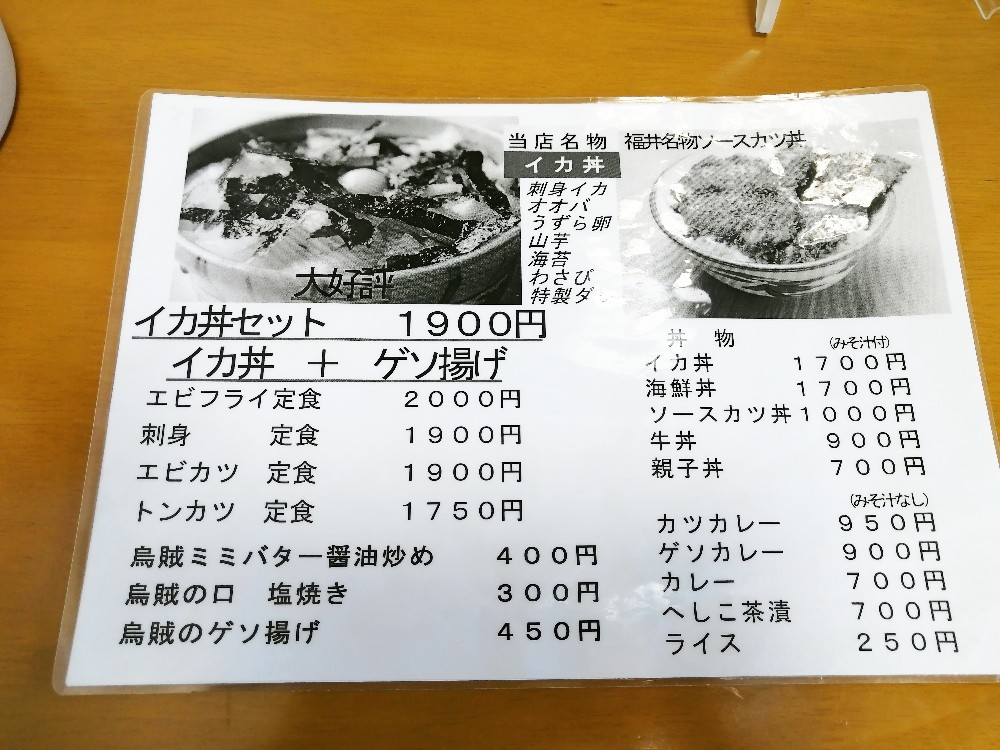 当店名物
イカ丼
刺身イカ
オオバ
うずら卵
山芋
海苔
わさび
特製ダ
福井名物ソースカツ丼
大好評
イカ丼セット 1900円
イカ丼 + ゲソ揚げ
エビフライ定食 2000円
刺身 定食 1900円
エビカツ 定食 1900円
トンカツ 定食 1750円
烏賊ミミバター醤油炒め 400円
烏賊の口 塩焼き 300円
烏賊のゲソ揚げ 450円
丼物 (みそ汁付)
イカ丼 1700円
海鮮丼 1700円
ソースカツ丼1000円
牛丼 900円
親子丼 700円
(みそ汁なし)
カツカレー 950円
ゲソカレー 900円
カレー 700円
へしこ茶漬 700円
ライス 250円